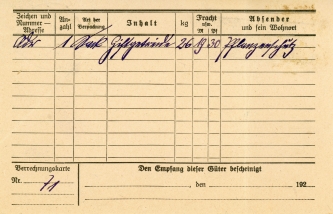 Zeichen und Nummer — Adresse An- zahl Art der Verpackung Inhalt kg Fracht usw. M Pf Absender und sein Wohnort
Adr 1 Sack Giftgetreide 26 19 30 Pflanzenschutz
Verrechnungskarte Den Empfang dieser Güter bescheinigt
Nr. 71 den 192